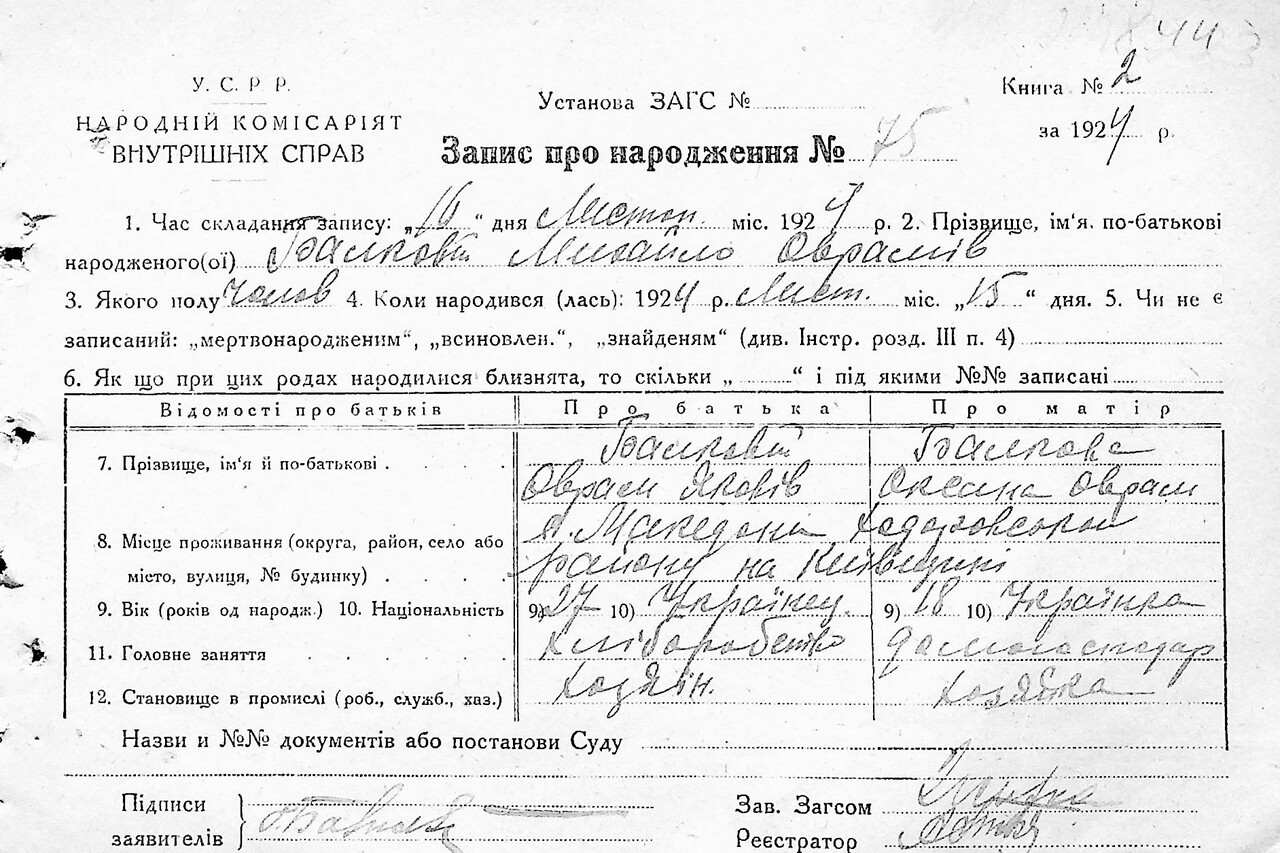 44
У. С. Р Р.
НАРОДНІЙ КОМІСАРІЯТ
ВНУТРІШНІХ СПРАВ
Установа ЗАГС №
Книга № 2
за 1924 р.
Запис про народження № 75
1. Час складання запису: „16“ дня Листоп. міс. 1924 р. 2. Прізвище, ім'я. по-батькові
народженого(ої) Балковий Михайло Оврамів
3. Якого полу Чолов 4. Коли народився (лась): 1924 р. Лист. міс. „15“ дня. 5. Чи не є
записаний: „мертвонародженим“, „всиновлен.“, „знайденям“ (див. Інстр. розд. III п. 4)
6. Як що при цих родах народилися близнята, то скільки „ “ і під якими №№ записані
Відомості про батьків Про батька Про матір
7. Прізвище, ім'я й по-батькові Балковий Балкова
Оврам Яковів Оксана Оврам
8. Місце проживання (округа, район, село або місто, вулиця, № будинку) с. Македони Ходоровського
району на Київщині
9. Вік (років од народж.) 10. Національність 9) 27 10) Українец. 9) 18 10) Українка
11. Головне заняття хліборобство домогосподар
12. Становище в промислі (роб., служб., хаз.) хозяїн. хозяйка
Назви и №№ документів або постанови Суду
Підписи
заявителів
Зав. Загсом
Реєстратор